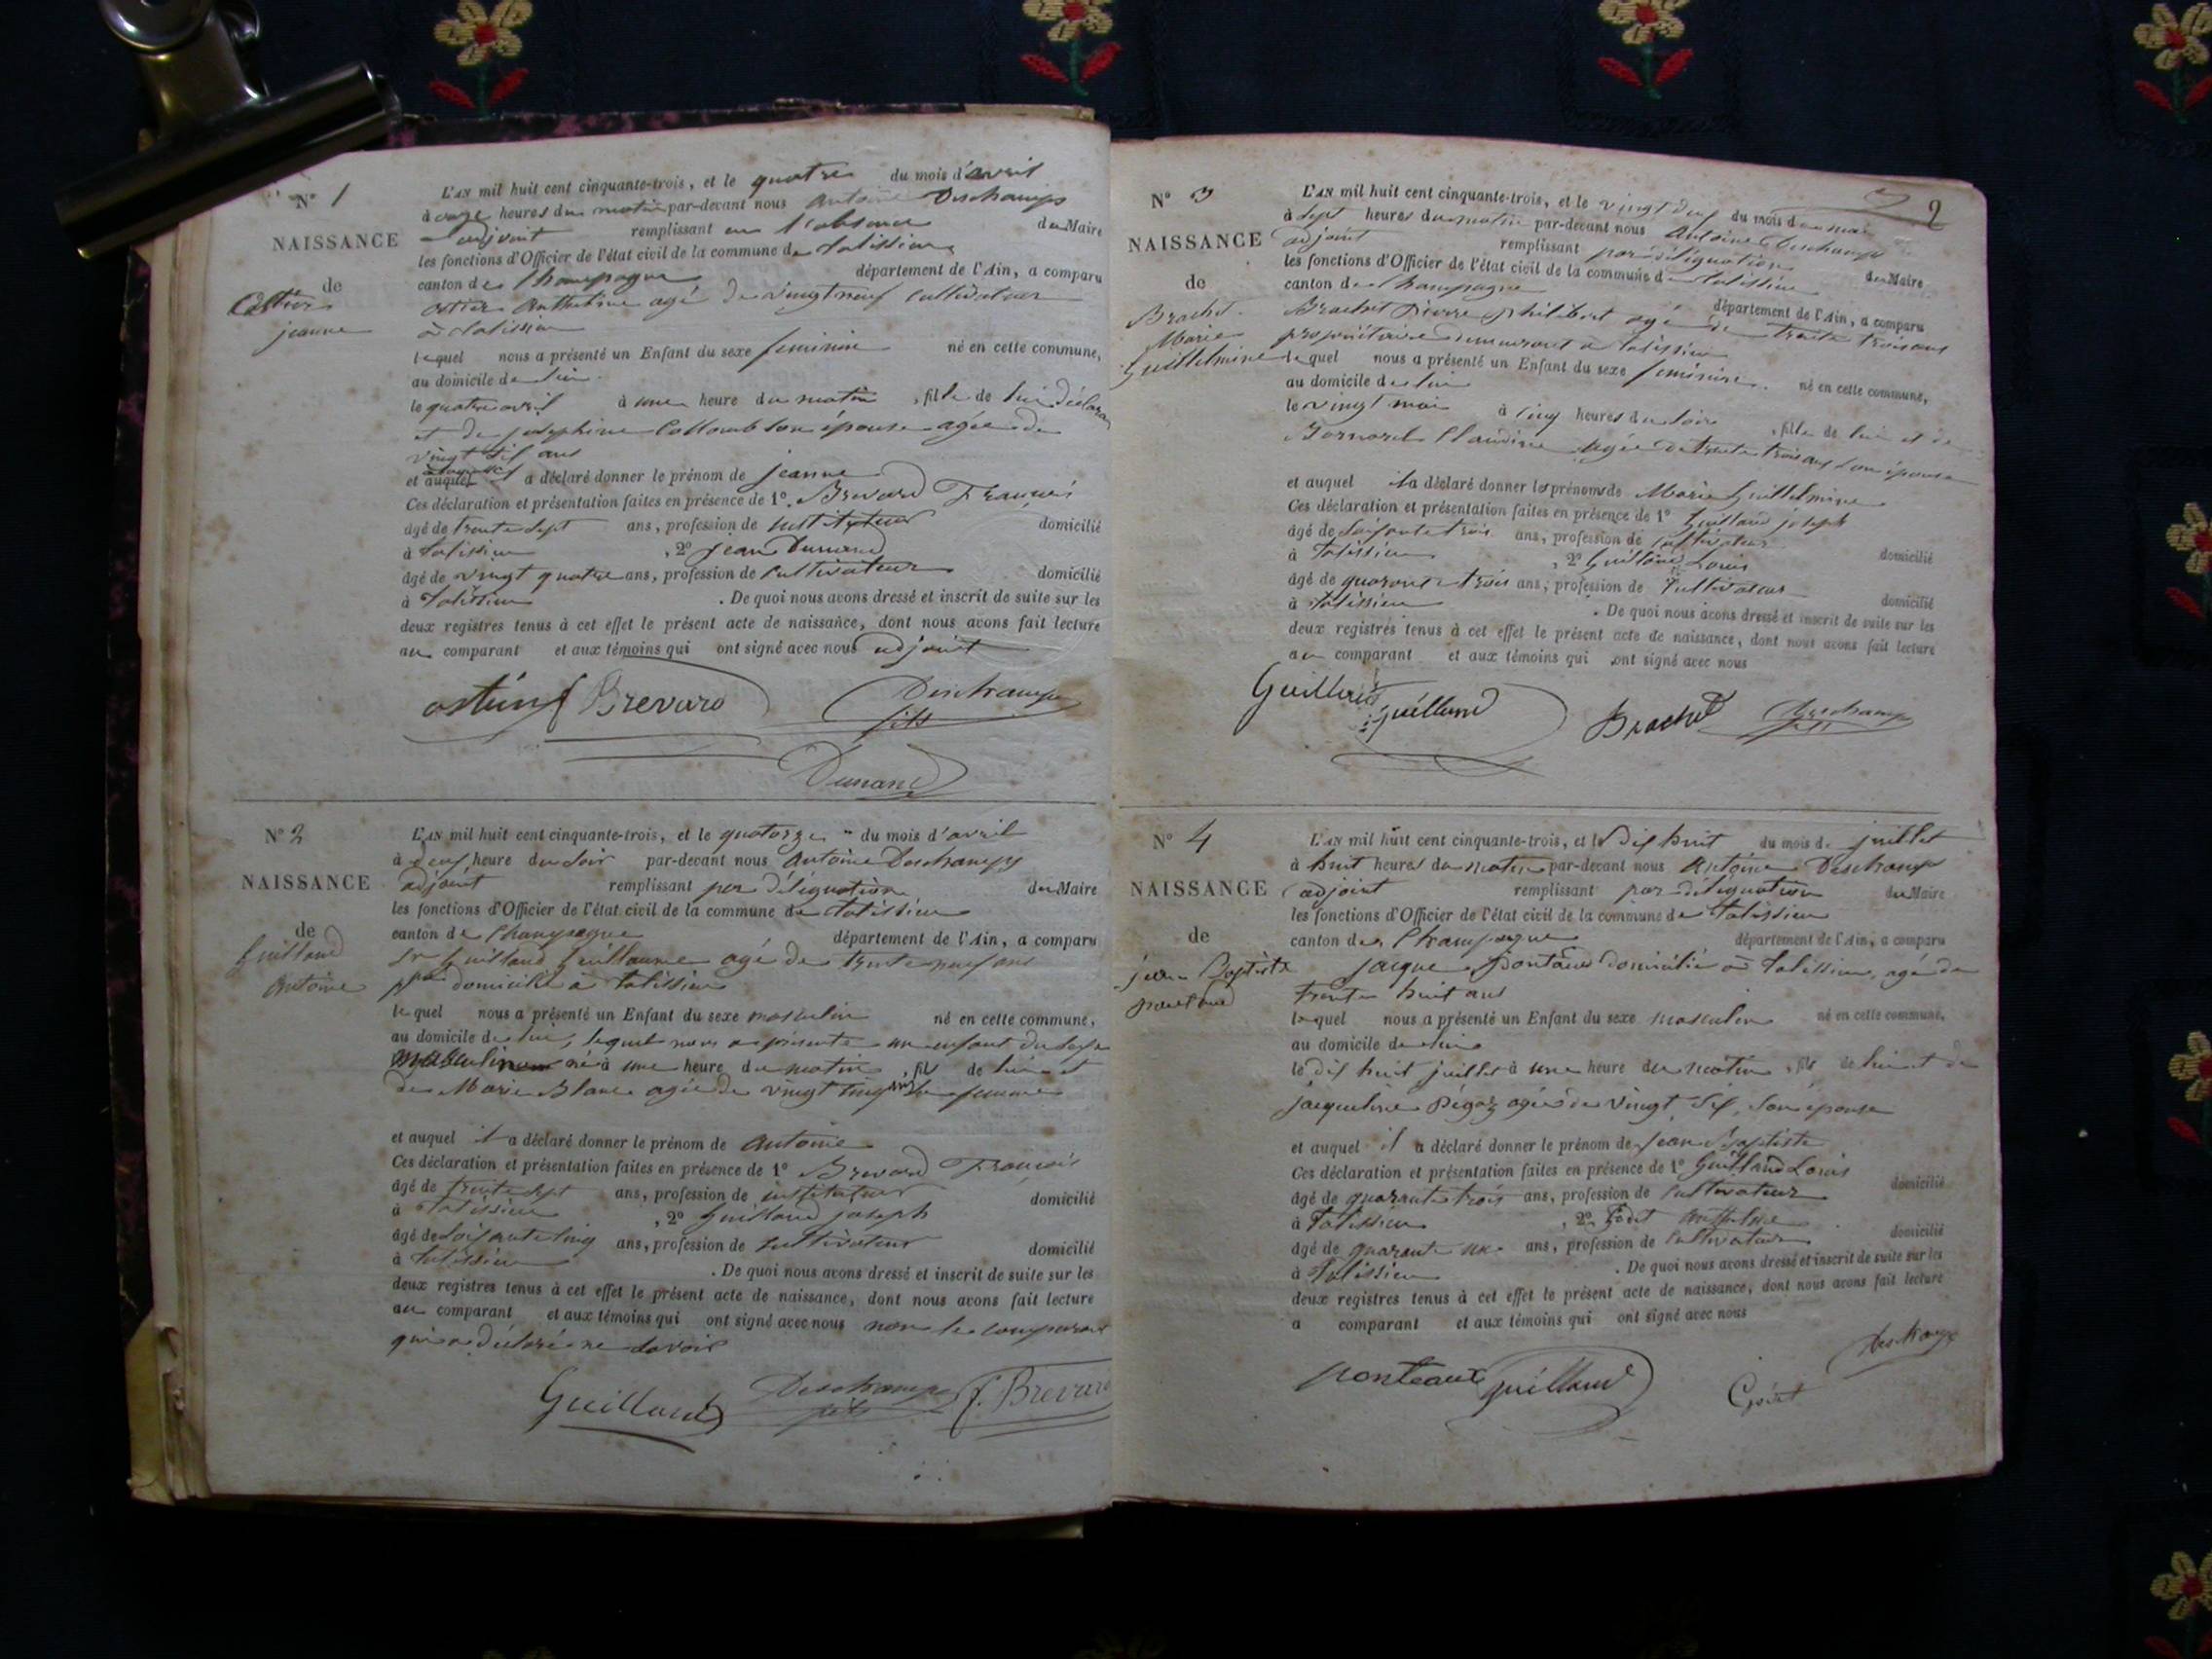 N° 1
NAISSANCE
de
Ostier
jeanne
L'AN mil huit cent cinquante-trois, et le quatre du mois d'avril
à onze heures du matin par-devant nous Antoine Deschamps
adjoint remplissant en l'absence du Maire
les fonctions d'Officier de l'état civil de la commune de talissieu
canton de Champagne département de l'Ain, a comparu
ostier Anthelme agé de vingt neuf cultivateur
à talissieu
lequel nous a présenté un Enfant du sexe feminin né en cette commune,
au domicile de lui
le quatre avril à une heure du matin, fille de lui déclarant
et de josephine Collomb son épouse agée de
vingt six ans
et auquel a déclaré donner le prénom de jeanne
Ces déclaration et présentation faites en présence de 1° Brevard François
âgé de trente sept ans, profession de instituteur domicilié
à talissieu, 2° jean Dumand
âgé de vingt quatre ans, profession de cultivateur domicilié
à talissieu. De quoi nous avons dressé et inscrit de suite sur les
deux registres tenus à cet effet le présent acte de naissance, dont nous avons fait lecture
au comparant et aux témoins qui ont signé avec nous adjoint
Brevard Deschamps
fils
N° 2
NAISSANCE
de
Guilland
Antoine
L'AN mil huit cent cinquante-trois, et le quatorze du mois d'avril
à deux heure du soir par-devant nous Antoine Deschamps
adjoint remplissant par déléguation du Maire
les fonctions d'Officier de l'état civil de la commune de talissieu
canton de Champagne département de l'Ain, a comparu
Sr Guilland Guillaume agé de trente neuf ans
ppre domicilié à talissieu
lequel nous a présenté un Enfant du sexe masculin né en cette commune,
au domicile de lui, lequel nous a présenté un enfant du sexe
masculin né à une heure du matin, fils de lui et
de Marie Blanc agée de vingt cinq ans sa femme
et auquel il a déclaré donner le prénom de Antoine
Ces déclaration et présentation faites en présence de 1° Brevard François
âgé de trente sept ans, profession de instituteur domicilié
à talissieu, 2° Guilland joseph
âgé de soixante cinq ans, profession de cultivateur domicilié
à talissieu. De quoi nous avons dressé et inscrit de suite sur les
deux registres tenus à cet effet le présent acte de naissance, dont nous avons fait lecture
au comparant et aux témoins qui ont signé avec nous non le comparant
qui a déclaré ne savoir
Guilland Deschamps fils f. Brevard
2
N° 3
NAISSANCE
de
Brachet
Marie
Guillelmine
L'AN mil huit cent cinquante-trois, et le vingt deux du mois de mai
à sept heures du matin par-devant nous Antoine Deschamps
adjoint remplissant par déléguation du Maire
les fonctions d'Officier de l'état civil de la commune de talissieu
canton de Champagne département de l'Ain, a comparu
Brachet Pierre philibert agé de trente trois ans
propriétaire demeurant à talissieu
lequel nous a présenté un Enfant du sexe feminine. né en cette commune,
au domicile de lui
le vingt mai à cinq heures du soire, fille de lui et de
Claudine agée de trente trois ans son épouse
et auquel il a déclaré donner les prénoms de Marie Guillelmine
Ces déclaration et présentation faites en présence de 1° Guilland joseph
âgé de soixante trois ans, profession de cultivateur domicilié
à talissieu, 2° Guilland Louis
âgé de quarante trois ans, profession de cultivateur domicilié
à talissieu. De quoi nous avons dressé et inscrit de suite sur les
deux registres tenus à cet effet le présent acte de naissance, dont nous avons fait lecture
au comparant et aux témoins qui ont signé avec nous
Guilland Guilland Brachet Deschamps fils
N° 4
NAISSANCE
de
jean Baptiste
L'AN mil huit cent cinquante-trois, et le dix huit du mois de juillet
à huit heures du matin par-devant nous Antoine Deschamps
adjoint remplissant par déléguation du Maire
les fonctions d'Officier de l'état civil de la commune de talissieu
canton de Champagne département de l'Ain, a comparu
jacque domicilié à talissieu, agé de
trente huit ans
lequel nous a présenté un Enfant du sexe masculin né en cette commune,
au domicile de lui
le dix huit juillet à une heure du matin, fils de lui et de
jacqueline Pégoz agée de vingt six, son épouse
et auquel il a déclaré donner le prénom de jean Baptiste
Ces déclaration et présentation faites en présence de 1° Guilland Louis
âgé de quarante trois ans, profession de cultivateur domicilié
à talissieu, 2° Godet Anthelme
âgé de quarante un ans, profession de cultivateur domicilié
à talissieu. De quoi nous avons dressé et inscrit de suite sur les
deux registres tenus à cet effet le présent acte de naissance, dont nous avons fait lecture
a comparant et aux témoins qui ont signé avec nous
ponteaux Guilland Godet Deschamps